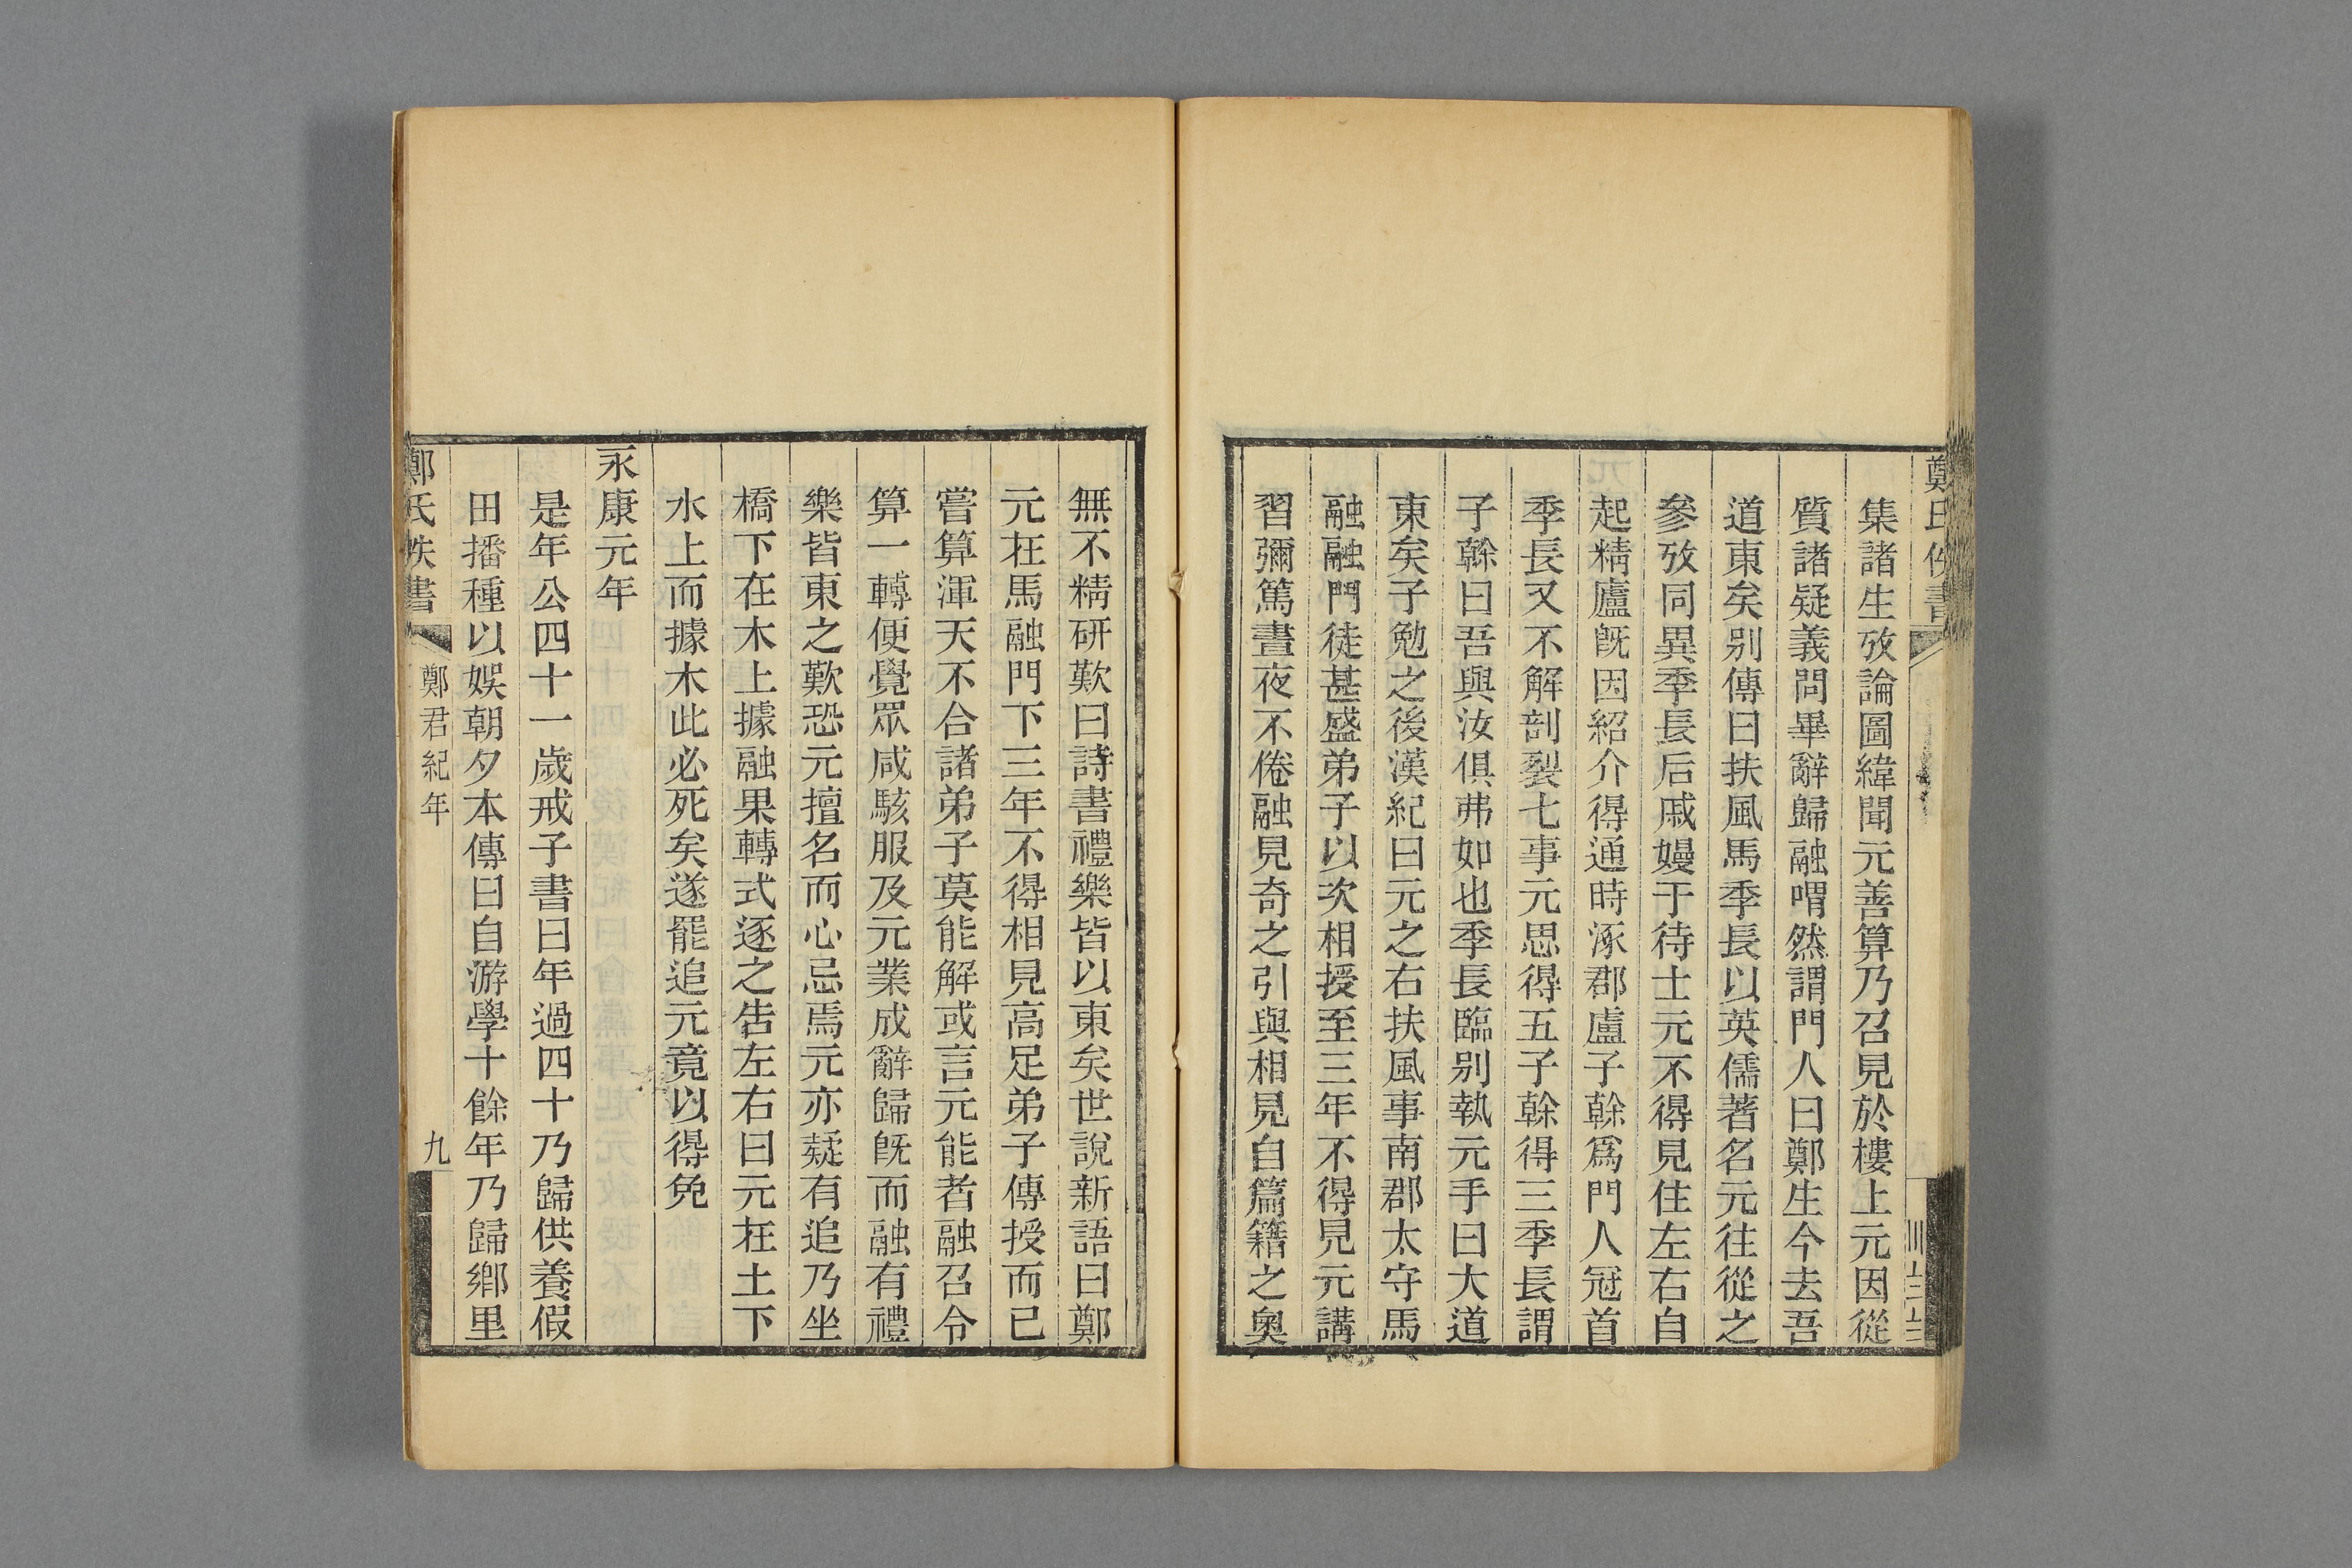 鄭氏佚書
集諸生攷論圖緯聞元善算乃召見於樓上元因從
質諸疑義問畢辭歸融喟然謂門人曰鄭生今去吾
道東矣别傳曰扶風馬季長以英儒著名元往從之
參攷同異季長后戚嫚于待士元不得見住左右自
起精廬旣因紹介得通時涿郡盧子榦爲門人冠首
季長又不解剖裂七事元思得五子榦得三季長謂
子榦曰吾與汝俱弗如也季長臨别執元手曰大道
東矣子勉之後漢紀曰元之右扶風事南郡太守馬
融融門徒甚盛弟子以次相授至三年不得見元講
習彌篤晝夜不倦融見奇之引與相見自篇籍之奧
無不精研歎曰詩書禮樂皆以東矣世說新語曰鄭
元在馬融門下三年不得相見高足弟子傳授而已
嘗算渾天不合諸弟子莫能解或言元能者融召令
算一轉便覺眾咸駭服及元業成辭歸旣而融有禮
樂皆東之歎恐元擅名而心忌焉元亦疑有追乃坐
橋下在木上據融果轉式逐之告左右曰元在土下
水上而據木此必死矣遂罷追元竟以得免
永康元年
是年公四十一歲戒子書曰年過四十乃歸供養假
田播種以娛朝夕本傳曰自游學十餘年乃歸鄉里
鄭氏佚書
鄭君紀年
九